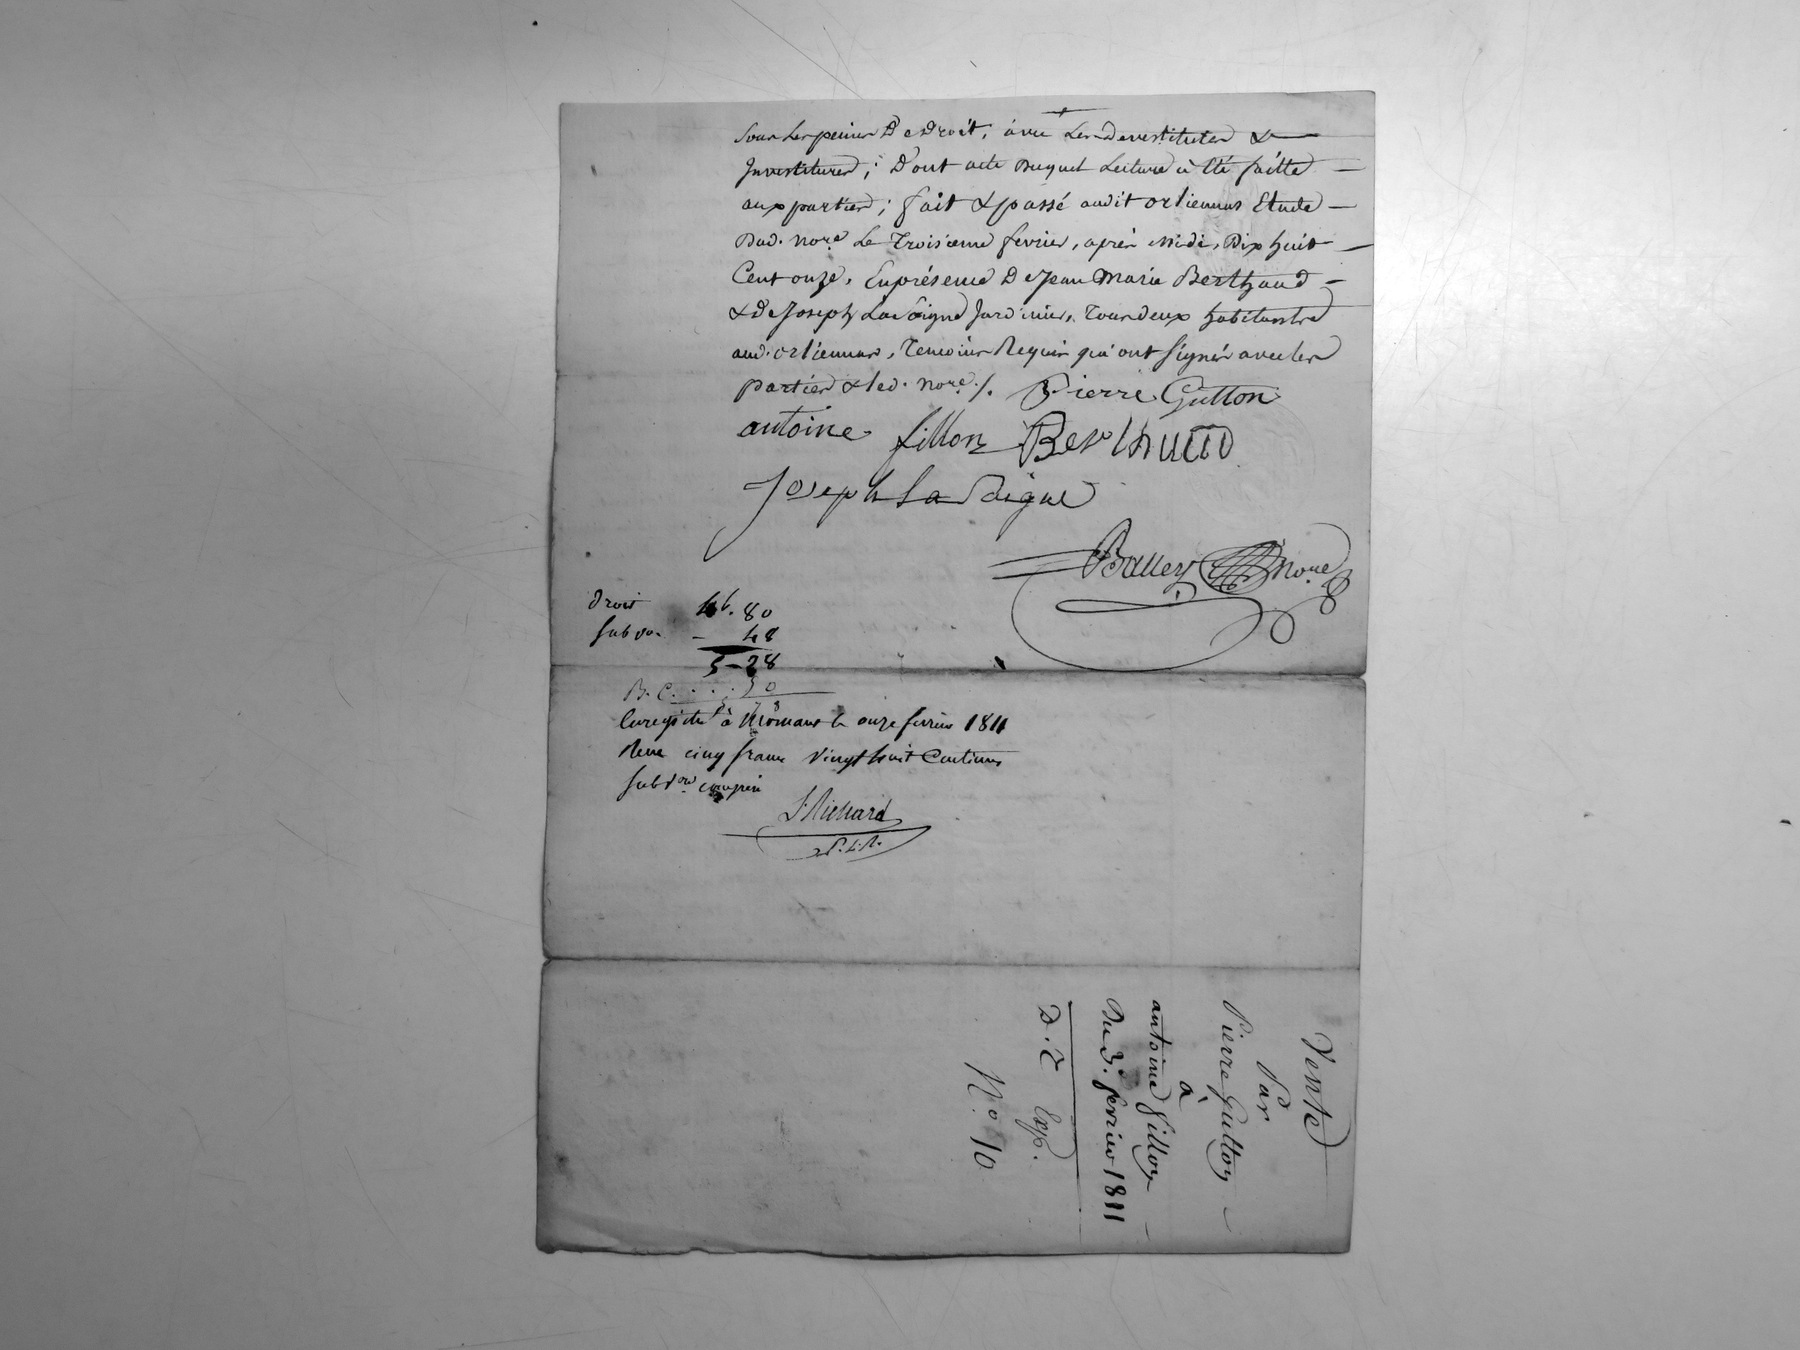 Sous les peines De Droit, avec Les devestitutes &
Investitures; Dont acte Duquel Lecture à été faitte
aux parties; fait & passé audit orlienas Etude
Dud. nore Le Troisieme fevrier, après Midi, Dix huit
Cent onze, En présence De Jean Marie Berthaud
& de Joseph Lavoigne Jardinier, Tous deux habitants
aud. orlienas, Temoins Requis qui ont signés avec les
parties & led. nore ./. Pierre Gutton
antoine fillon Berthaud
Joseph La
Balley Nore
Droit 4f. 80
Subvon. - 48
5-28
B. C. .... 50
Enregistré à Mornant le onze fevrier 1811
Reçu cinq francs vingt huit Centimes
Subvon compris
Richard
Vente
Par
Pierre Gutton
à
antoine fillon
Du 3. fevrier 1811
D. T Exp.
No. 10